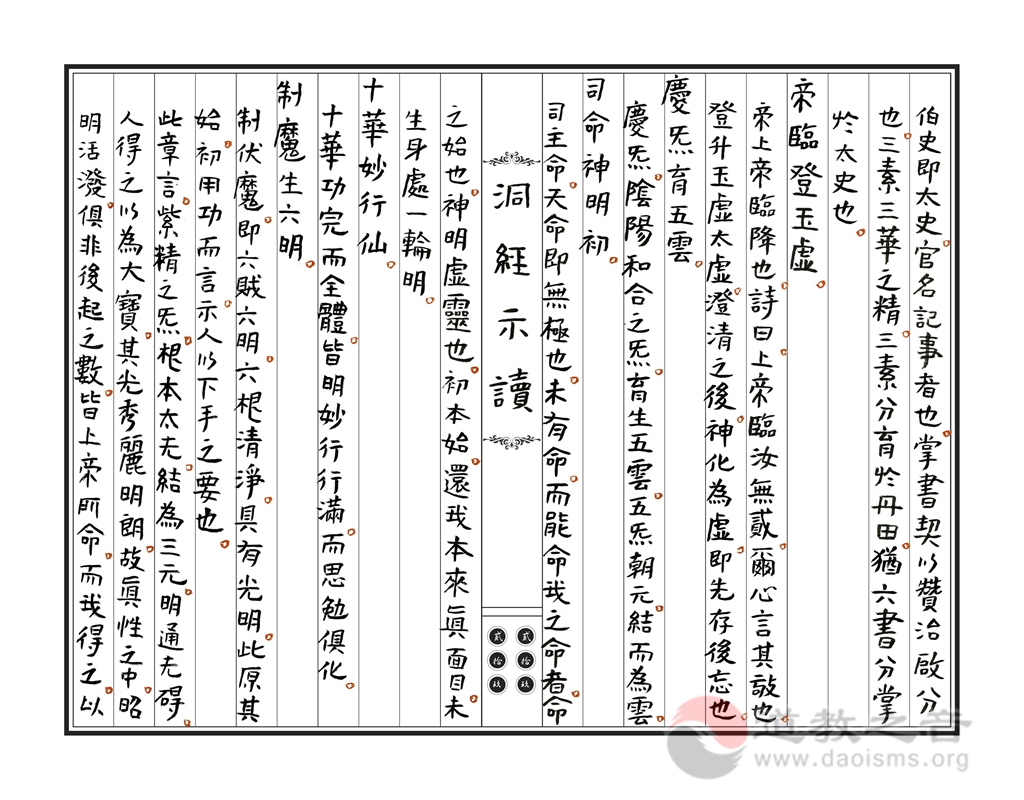 伯史即太史官名記事者也掌書契以贊治啟分
也三素三華之精三素分育於丹田猶六書分掌
於太史也
帝臨登玉虛
帝上帝臨降也詩曰上帝臨汝無貳爾心言其敬也
登升玉虛太虛澄清之後神化為虛即先存後忘也
慶炁育五雲
慶炁陰陽和合之炁育生五雲五炁朝元結而為雲
司命神明初
司主命天命即無極也未有命而能命我之命者命
洞經示讀
貳拾玖
貳拾玖
之始也神明虛靈也初本始還我本來真面目未
生身處一輪明
十華妙行仙
十華功完而全體皆明妙行行滿而思勉俱化
制魔生六明
制伏魔即六賊六明六根清淨具有光明此原其
始初用功而言示人以下手之要也
此章言紫精之炁根本太无結為三元明通无碍
人得之以為大寶其光秀麗明朗故真性之中昭
明活潑俱非後起之數皆上帝所命而我得之以
道教之音
www.daoisms.org